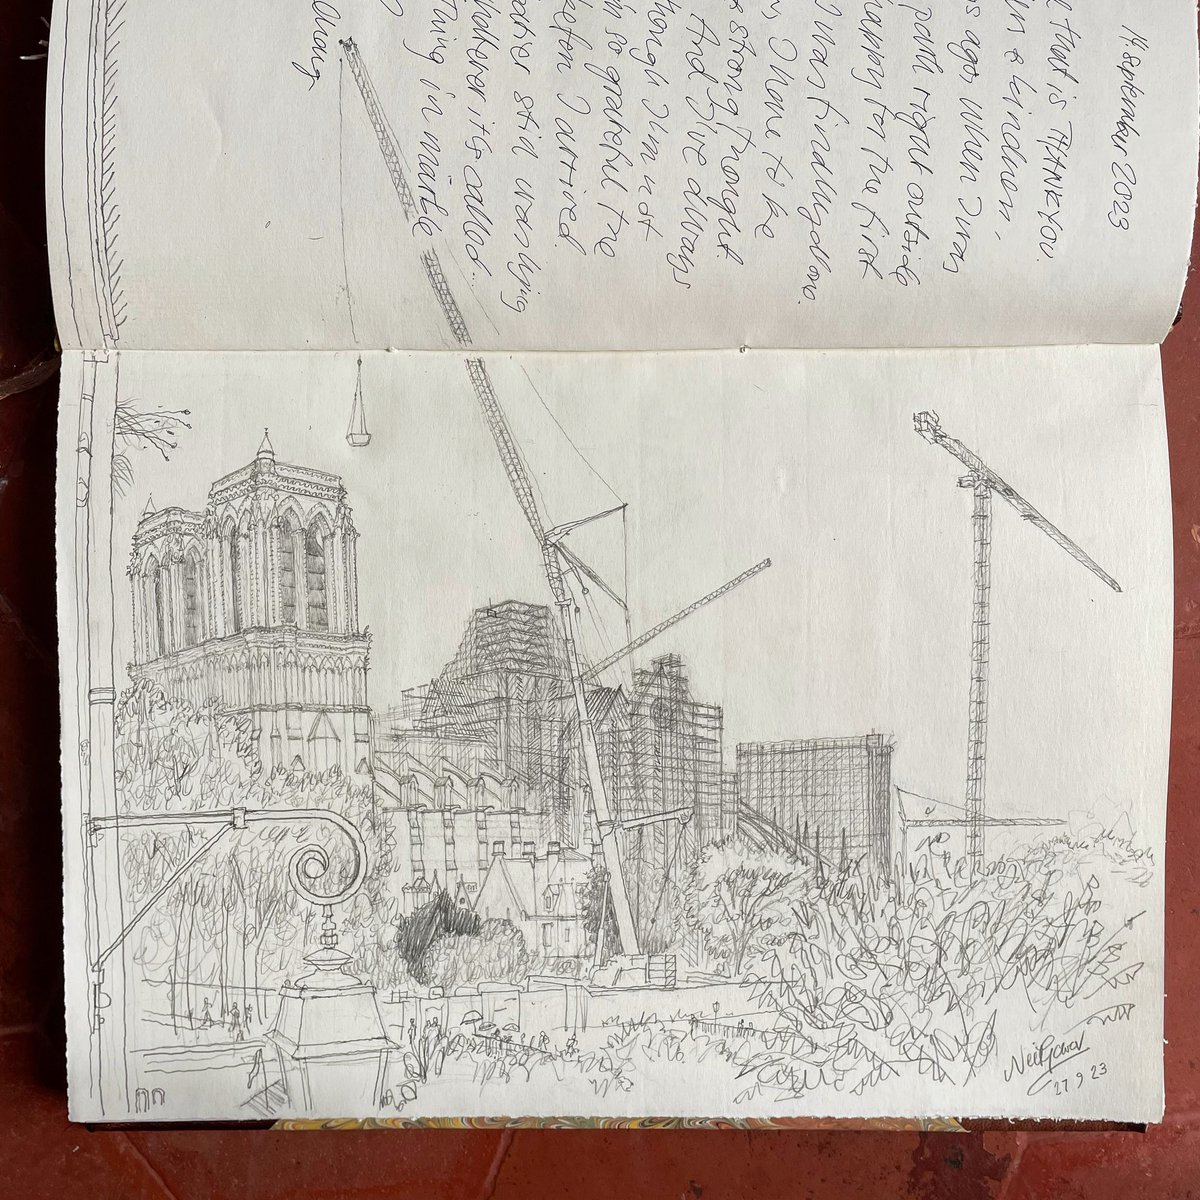 11. September 2023
that is THANK YOU
kindness,
ago, when I was
path right outside
happy for the first
I was finally alone.
I have to be
strong thought
And I've always
though I'm not
so grateful the
before I arrived
still was lying
whatever it's called..
thing in marble
Neil Gower
27 9 23